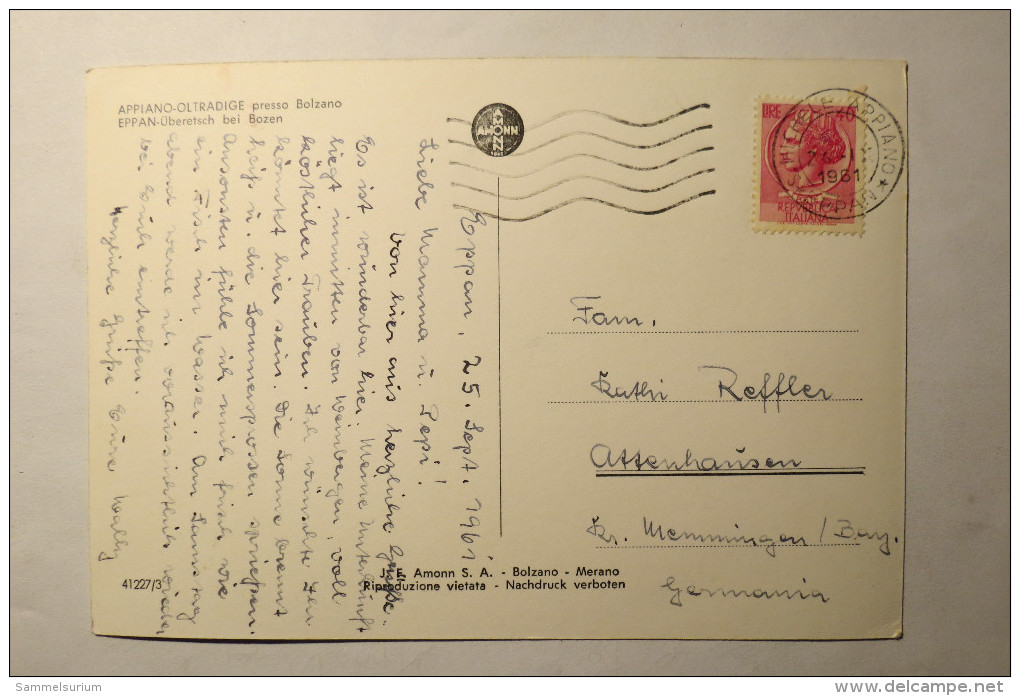 APPIANO-OLTRADIGE presso Bolzano
EPPAN-Überetsch bei Bozen
AMONN
BOZEN
LIRE 40
REPUBBLICA
ITALIANA
APPIANO
EPPAN
1961
Eppan, 25. Sept. 1961
Liebe Mamma u. Pepi!
Von hier aus herzliche Grüße.
Es ist wunderbar hier. Meine Unterkunft
liegt inmitten von Weinbergen, voll
köstlicher Trauben. Ich wünschte Ihr
könntet hier sein. Die Sonne brennt
heiß u. die Sommersprossen sprießen.
Ansonsten fühle ich mich frisch wie
ein Fisch im Wasser. Am Samstag
abend werde ich voraussichtlich wieder
bei Euch eintreffen.
Herzliche Grüße Eure Wally
Fam.
Kathi Reffler
Attenhausen
Kr. Memmingen/Bay.
Germania
41227/3
J. F. Amonn S. A. - Bolzano - Merano
Riproduzione vietata - Nachdruck verboten
Sammelsurium
www.delcampe.net